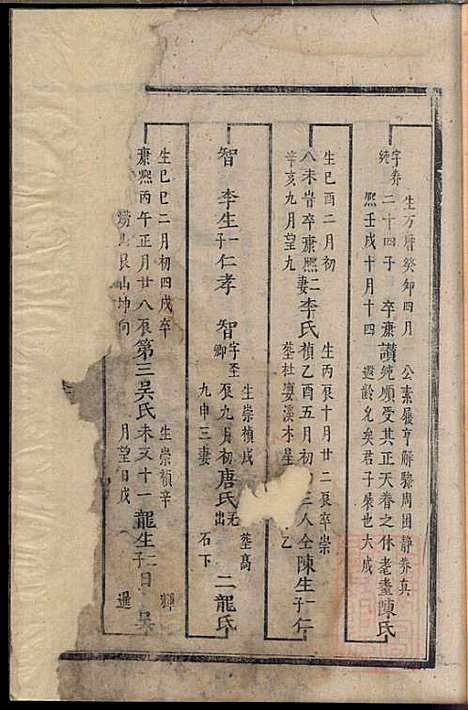 字养純
生万曆癸卯四月
二十四子卒康
熙壬戌十月十四
讃
公素履亨鮮驗周困静养真
純順受其正天眷之休老臺
遐齡允矣君子展也大成
陳氏
生已酉二月初
八未昔卒康熙二
辛亥九月望九
妻李氏
生丙辰十月廿二辰卒崇
禎乙酉五月初
塟社婆溪木星
三人仝
乙
陳生一子仁
智
李生一子仁孝
智
字至卿
生崇禎戌
辰九月初
九申三妻
唐氏
无出
塟高
石下
二龍氏
生已巳二月初四戌卒
康熙丙午正月廿八辰
艮山坤向
第三吴氏
生崇禎辛
未又十一
月望日戌
龍生二子曰
暹
吴